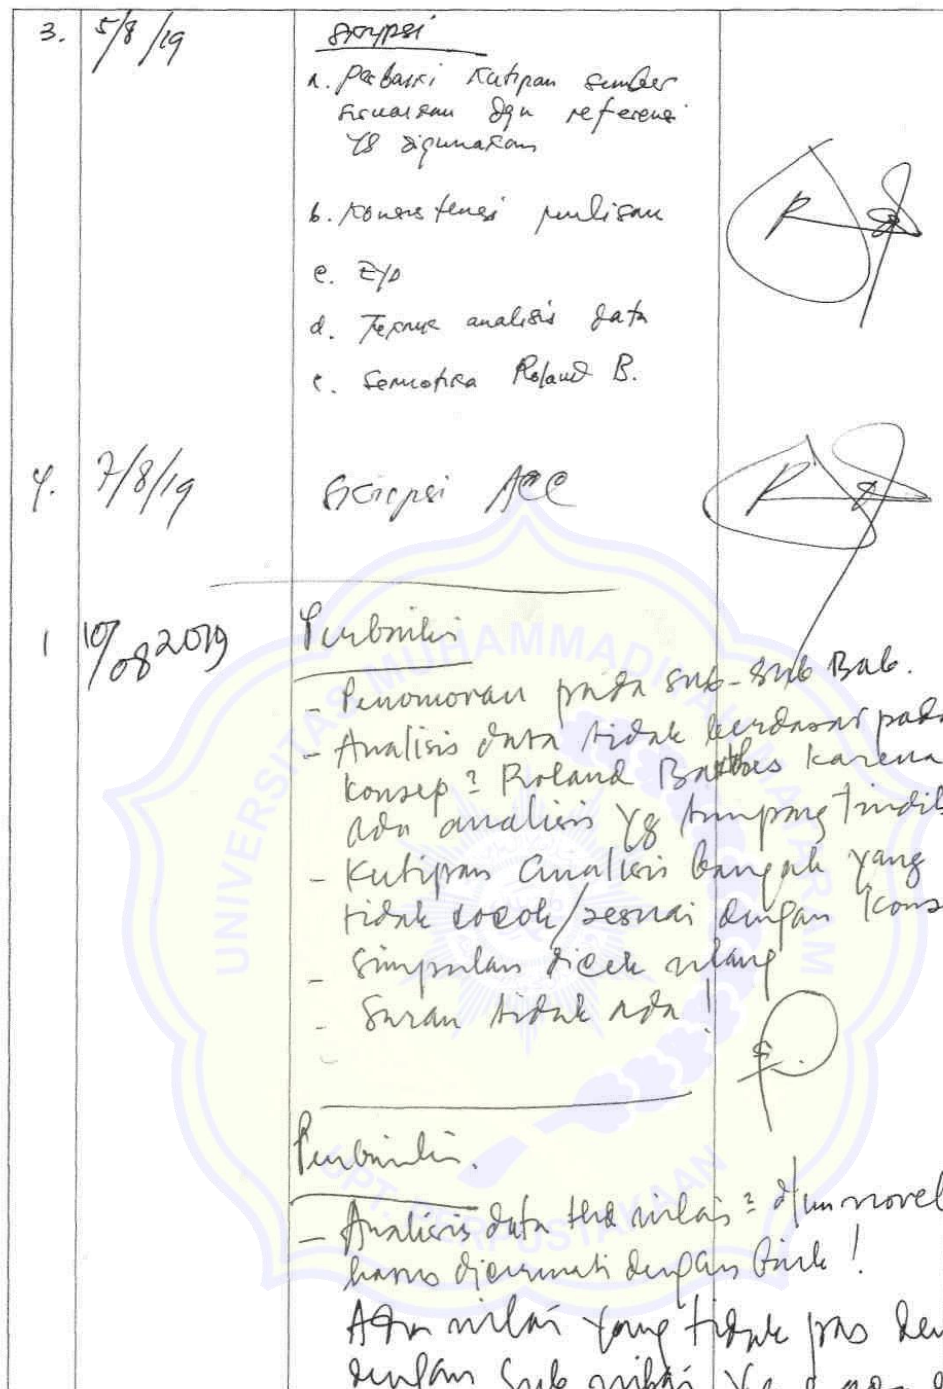 3. 5/8/19 Skripsi
a. Perbaiki kutipan sumber
sesuaikan dgn referensi
yg digunakan
b. Konsistensi penulisan
c. EYD
d. Teknik analisis data
e. Semiotika Roland B.
4. 7/8/19 Skripsi ACC
1 10/08 2019 Perbaiki
- Penomoran pada sub-sub Bab.
- Analisis data tidak berdasar pada
konsep² Roland Barthes karena
ada analisis yg tumpang tindih
- Kutipan analisis banyak yang
tidak cocok/sesuai dengan kons
- Simpulan dicek ulang
- Saran tidak ada!
Perbaiki.
- Analisis data nilai² dlm novel
harus dicermati dengan baik!
Ada nilai yang tidak pas
dengan sub nilai yg
UNIVERSITAS MUHAMMADIYAH MATARAM
UPT. PERPUSTAKAAN